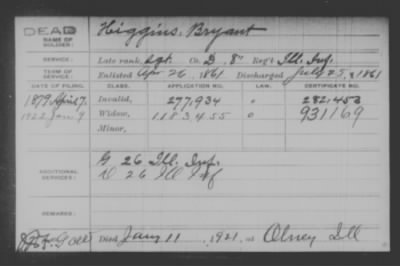 DEAD
NAME OF SOLDIER:
Higgins, Bryant
SERVICE:
Late rank, Sgt. Co. D, 8" Reg't Ill. Inf.
TERM OF SERVICE:
Enlisted Apr 26, 1861 Discharged July 25, 1861
DATE OF FILING. CLASS. APPLICATION NO. LAW. CERTIFICATE NO.
1879 April 7. Invalid, 277,934 " 282,453
1922 Jan 9 Widow, 1183455 " 931169
Minor,
ADDITIONAL SERVICES:
G 26 Ill. Inf.
D 26 Ill Inf
REMARKS:
Died Jany 11, 1921, at Olney Ill